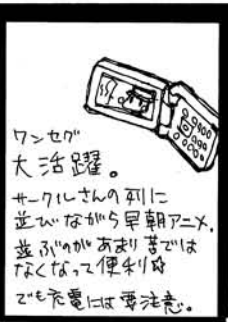 ワンセグ
大活躍。
サークルさんの列に
並びながら早朝アニメ。
並ぶのがあまり苦では
なくなって便利☆
でも充電には要注意。